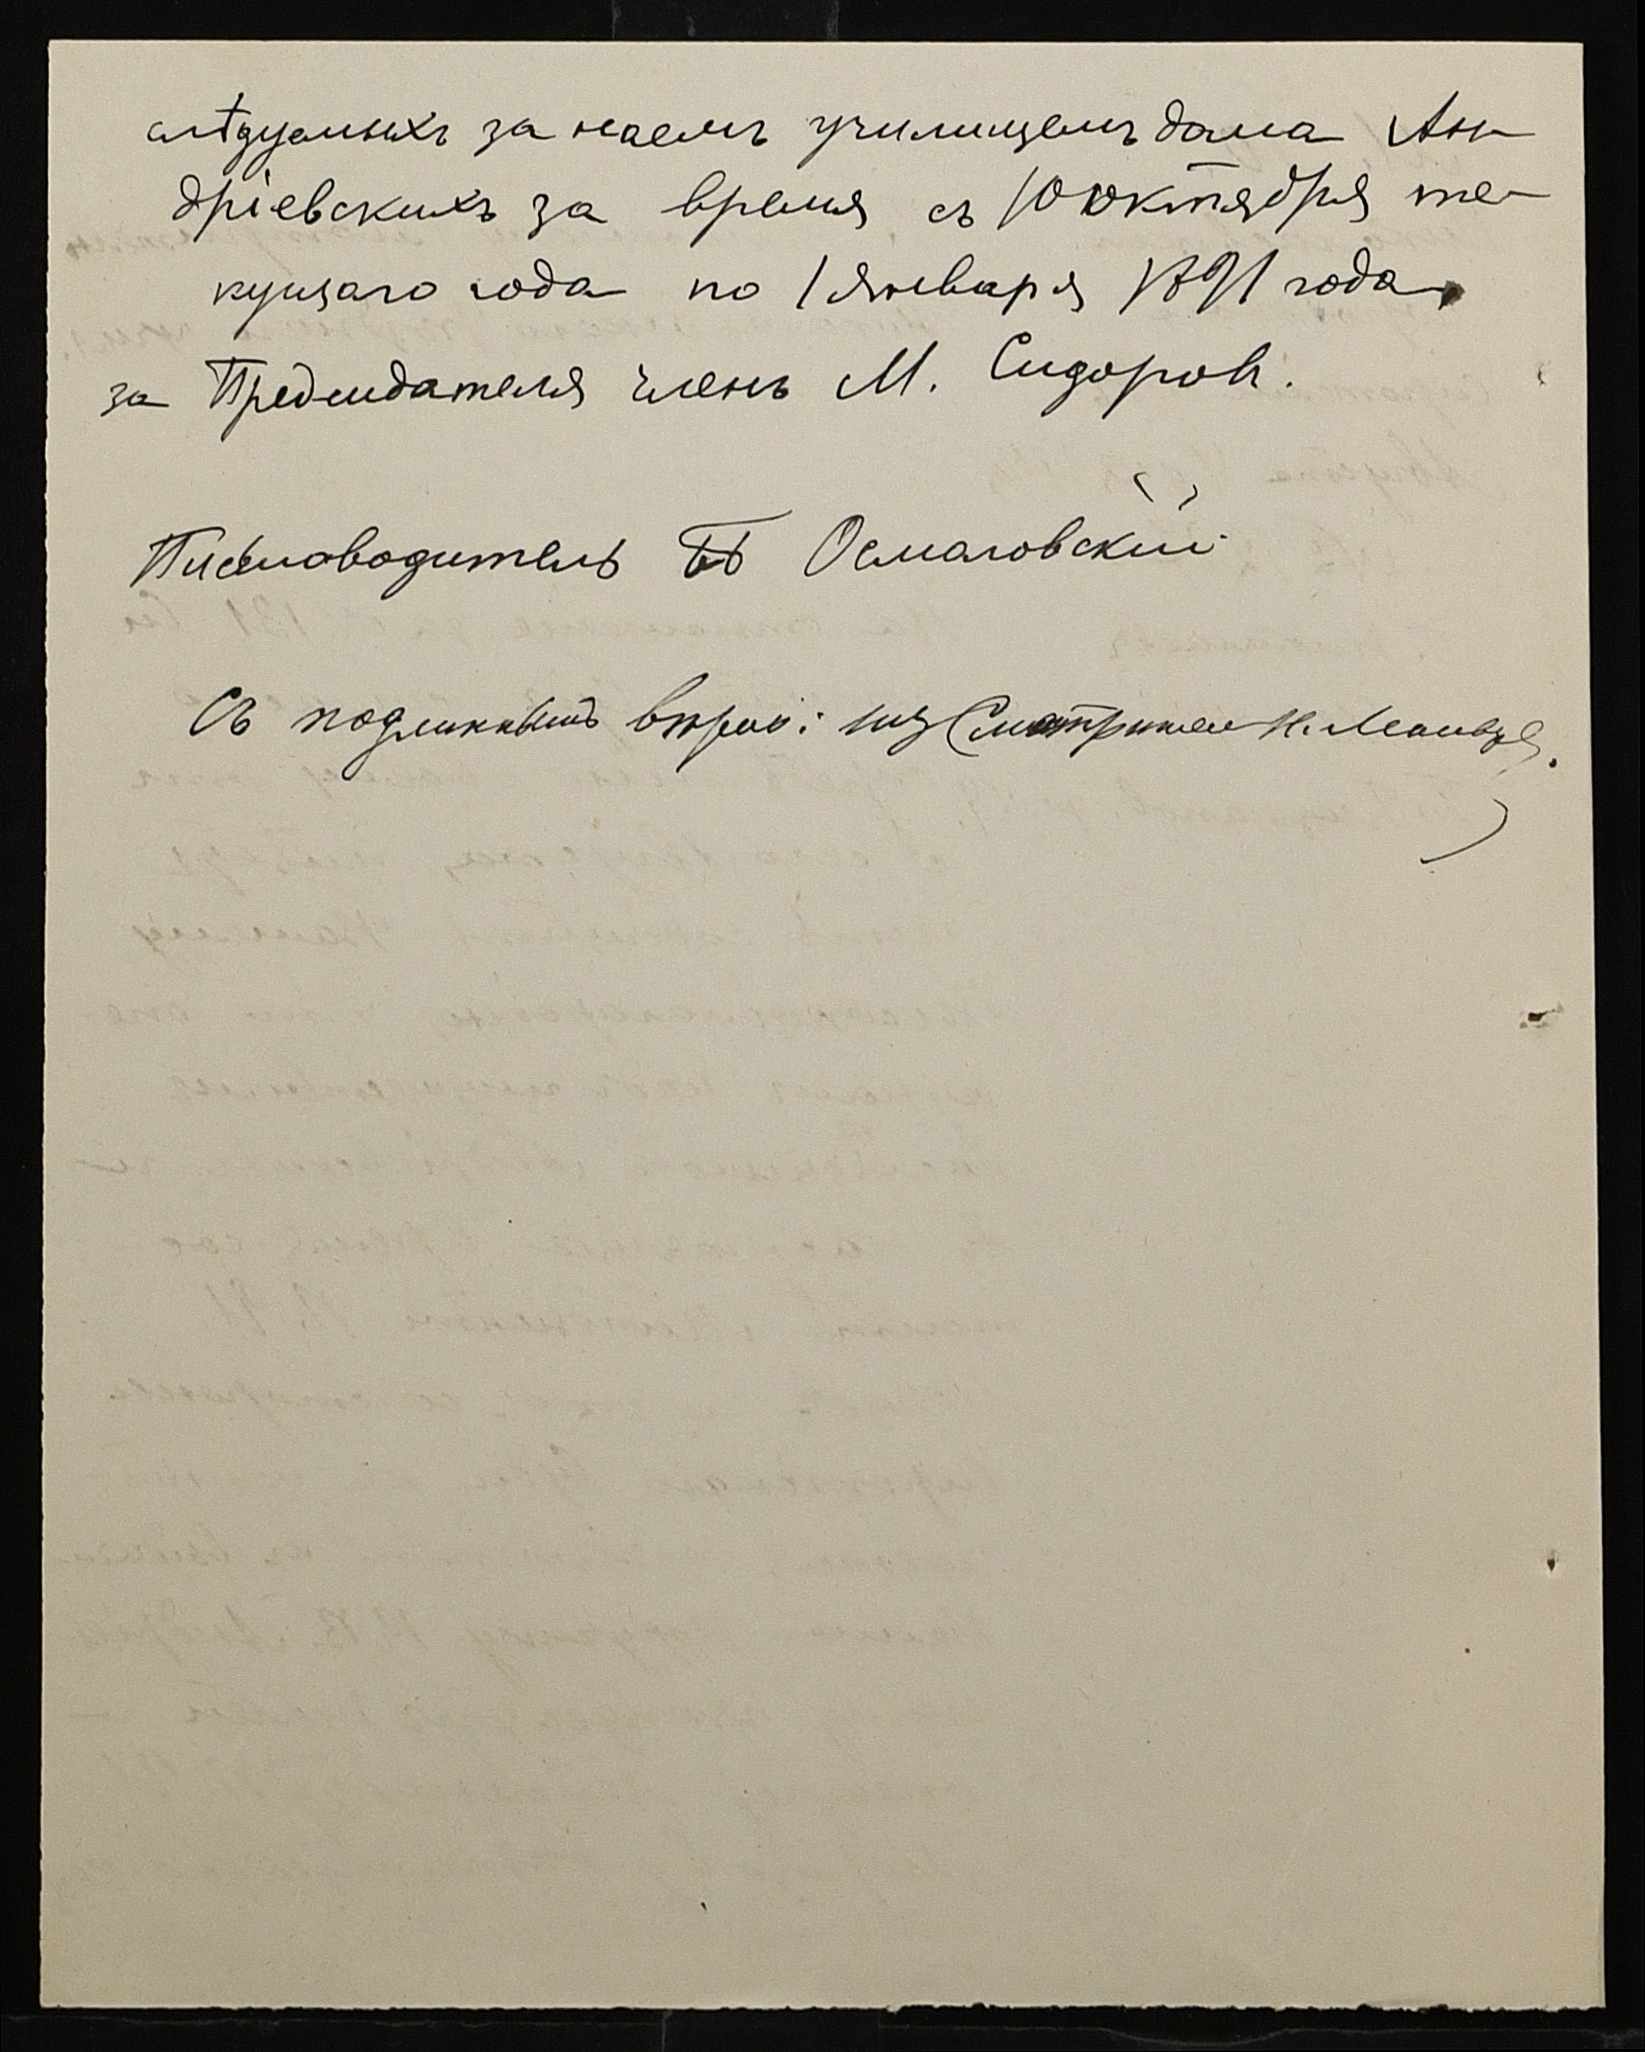 слѣдуемыхъ за наемъ училищемъ дома Ан-
дріевскихъ за время съ 10 октября те-
кущаго года по 1 января 1891 года.
за Председателя членъ М. Сидоровъ.
Письмоводитель Осмаловскій
Съ подлиннымъ вѣрно: Смотритель Н.